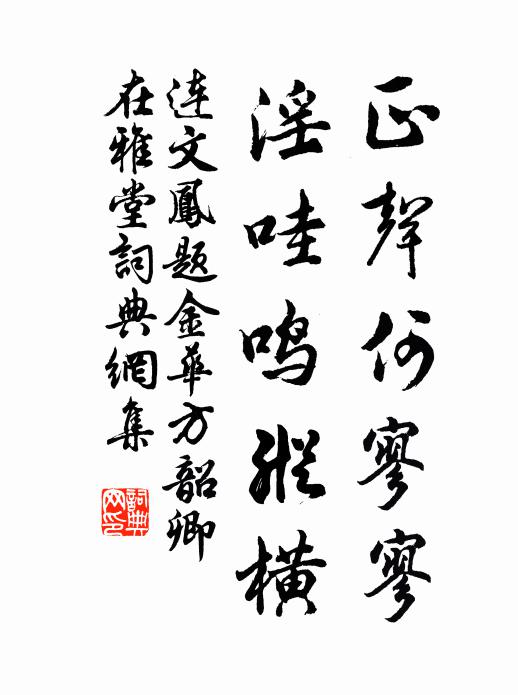 正聲何寥寥
淫哇鳴縱橫
连文鳳题金華方韶卿
在雅堂詞典網集
詞典网印